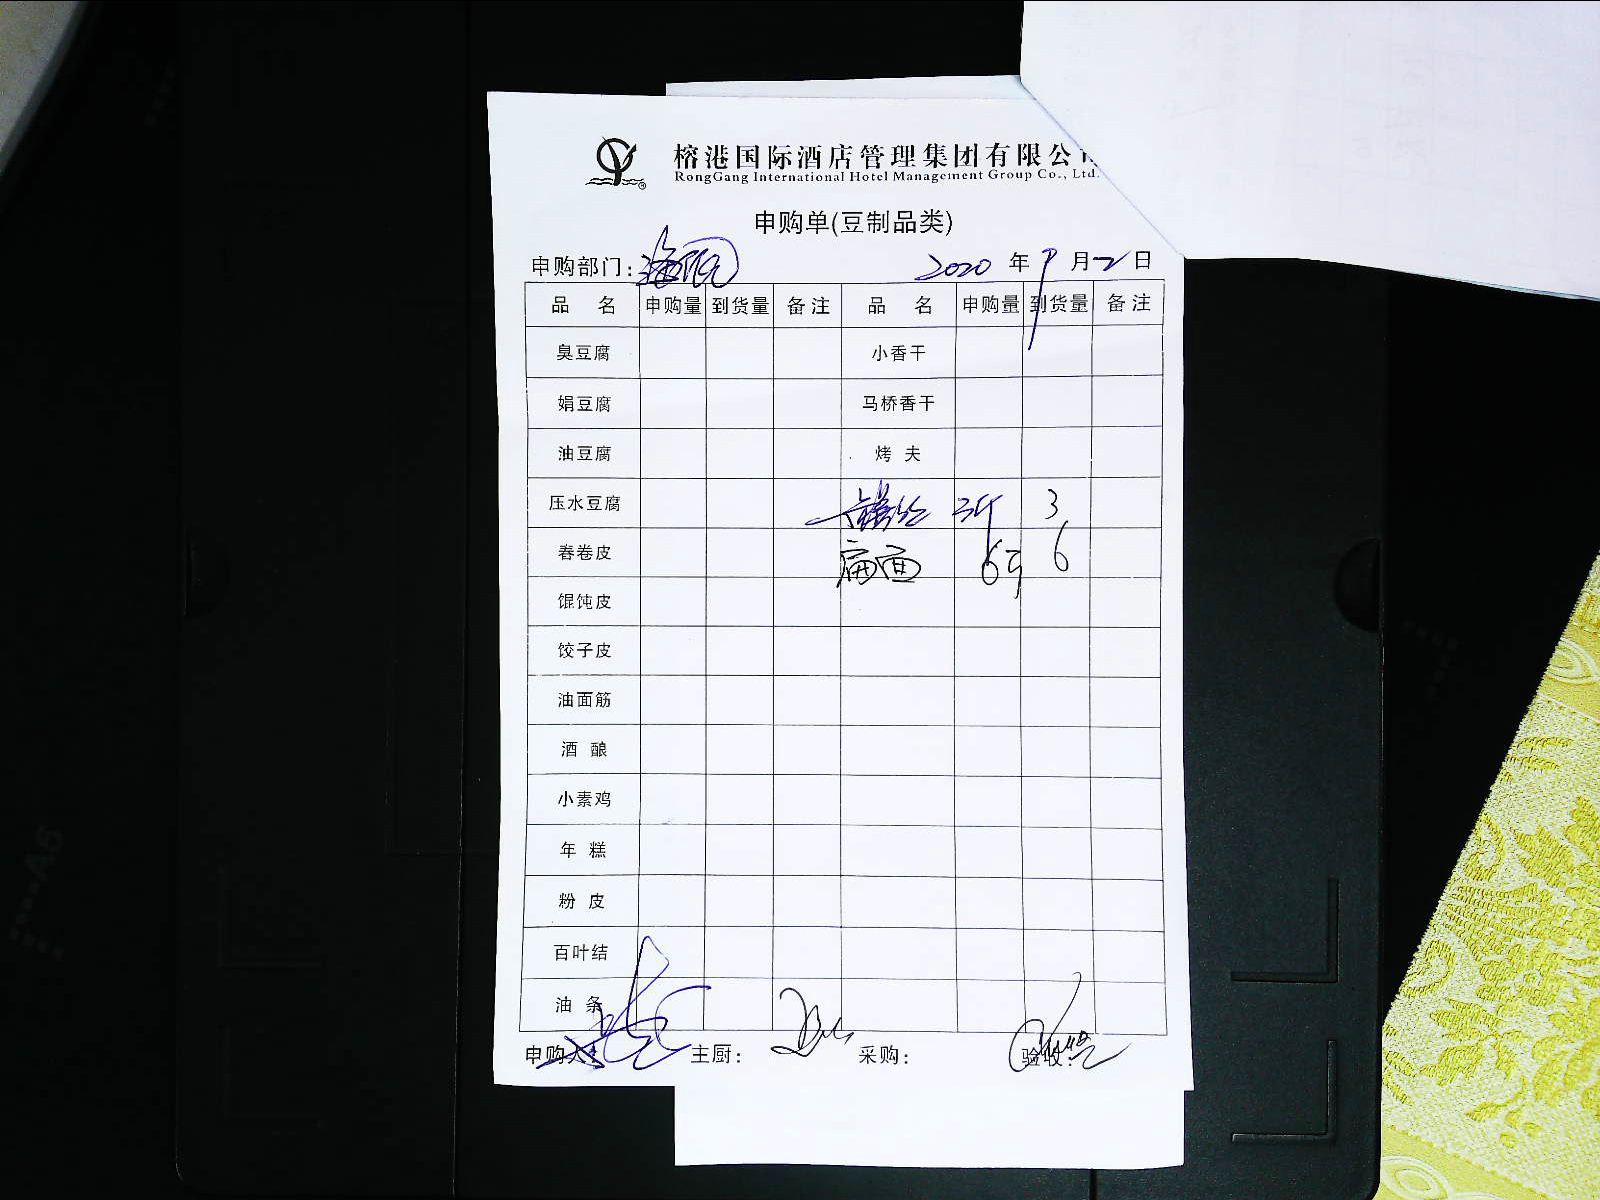 榕港国际酒店管理集团有限公
RongGang International Hotel Management Group Co., Ltd.
申购单(豆制品类)
申购部门: 2020 年 9 月 2 日
品 名 申购量 到货量 备注 品 名 申购量 到货量 备注
臭豆腐 小香干
娟豆腐 马桥香干
油豆腐 烤 夫
压水豆腐 3斤 3
春卷皮 扁面 6斤 6
馄饨皮
饺子皮
油面筋
酒 酿
小素鸡
年 糕
粉 皮
百叶结
油 条
申购人: 主厨: 采购: 验收: